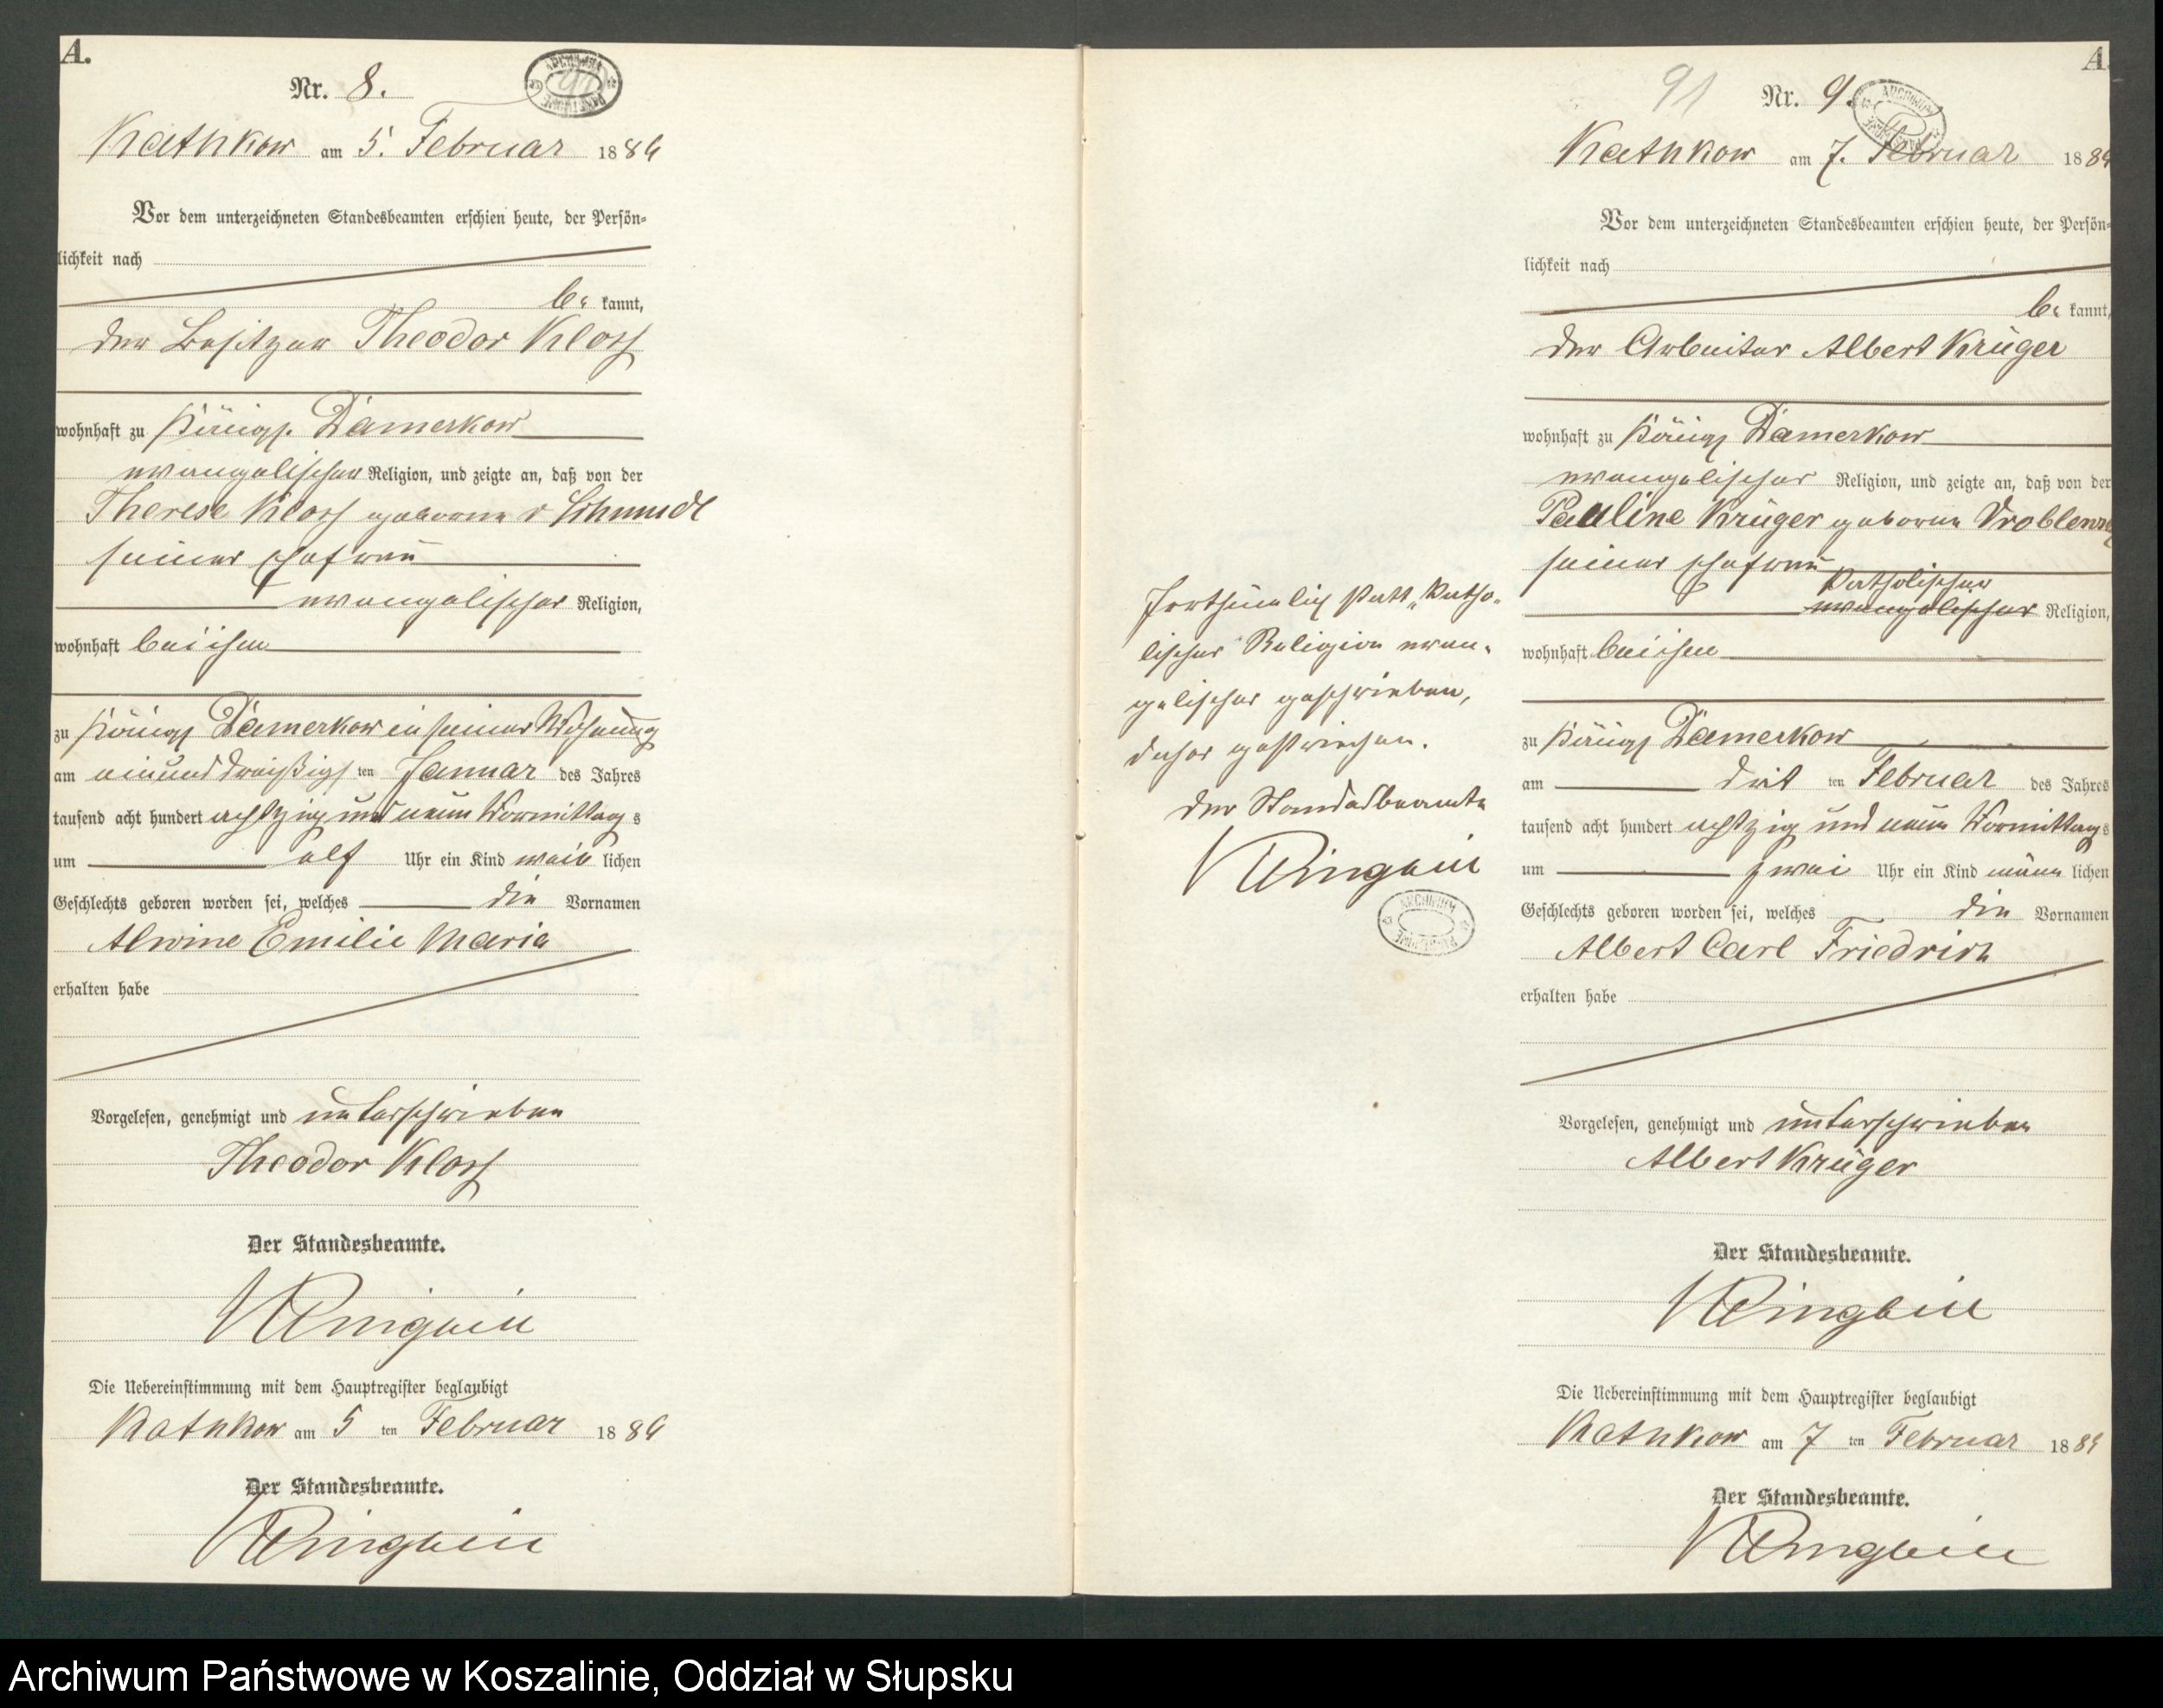 A.
Nr. 8.
Kathkow am 5. Februar 1889
Vor dem unterzeichneten Standesbeamten erschien heute, der Persön=
lichkeit nach
be kannt,
der Besitzer Theodor Kloss
wohnhaft zu Königl. Damerkow
evangelischer Religion, und zeigte an, daß von der
Therese Kloss geborene Schmidt
seiner Ehefrau
evangelischer Religion,
wohnhaft bei ihm
zu Königl Damerkow in seiner Wohnung
am einunddreißigs ten Januar des Jahres
tausend acht hundert achtzig und neun Vormittag s
um elf Uhr ein Kind weib lichen
Geschlechts geboren worden sei, welches die Vornamen
Alwine Emilie Maria
erhalten habe
Vorgelesen, genehmigt und unterschrieben
Theodor Kloss
Der Standesbeamte.
Die Uebereinstimmung mit dem Hauptregister beglaubigt
Kathkow am 5 ten Februar 1889
Der Standesbeamte.
A.
91 Nr. 9.
Kathkow am 7. Februar 1889
Vor dem unterzeichneten Standesbeamten erschien heute, der Persön=
lichkeit nach
be kannt,
der Arbeiter Albert Krüger
wohnhaft zu Königl Damerkow
evangelischer Religion, und zeigte an, daß von der
Pauline Krüger geborene
seiner Ehefrau
Katholischer
evangelischer Religion,
wohnhaft bei ihm
zu Königl Damerkow
am drit ten Februar des Jahres
tausend acht hundert achtzig und neun Vormittag s
um zwei Uhr ein Kind männ lichen
Geschlechts geboren worden sei, welches die Vornamen
Albert Carl Friedrich
erhalten habe
Vorgelesen, genehmigt und unterschrieben
Albert Krüger
Der Standesbeamte.
Die Uebereinstimmung mit dem Hauptregister beglaubigt
Kathkow am 7 ten Februar 1889
Der Standesbeamte.
Irrthümlich statt „Katho-
lischer" Religion evan-
gelischer geschrieben,
daher gestrichen.
Der Standesbeamte
Archiwum Państwowe w Koszalinie, Oddział w Słupsku